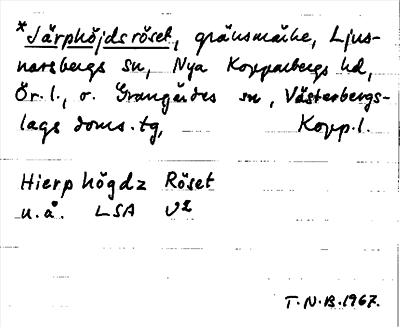 *Järphöjdsröset, gränsmärke, Ljus-
narsbergs sn, Nya Kopparbergs hd,
Ör. l., o. Grangärdes sn, Västerbergs-
lags doms. tg, Kopp. l.
Hierp högdz Röset
u.å. LSA V2
T.N.B. 1967.